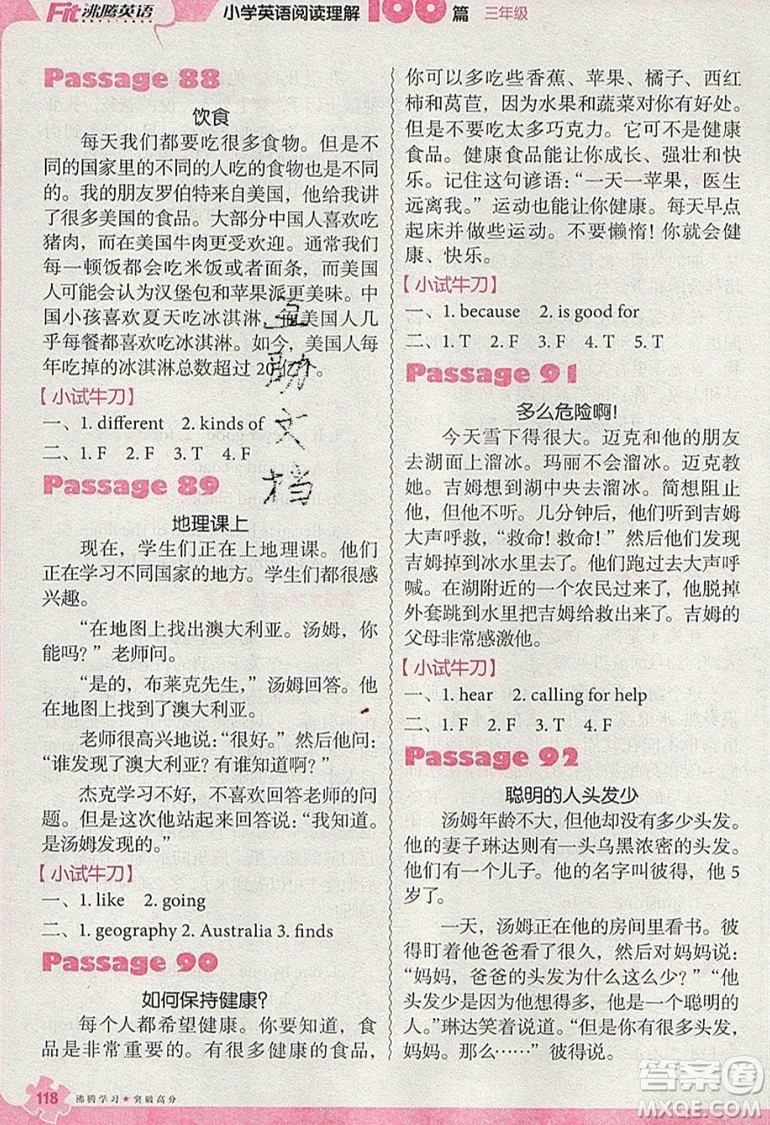 Fit沸腾英语
小学英语阅读理解100篇 三年级
Passage 88
饮食
每天我们都要吃很多食物。但是不
同的国家里的不同的人吃的食物也是不同
的。我的朋友罗伯特来自美国，他给我讲
了很多美国的食品。大部分中国人喜欢吃
猪肉，而在美国牛肉更受欢迎。通常我们
每一顿饭都会吃米饭或者面条，而美国
人却认为汉堡包和苹果派更美味。中
国小孩喜欢夏天吃冰淇淋，但美国人几
乎每餐都喜欢吃冰淇淋。如今，美国人每
年吃掉的冰淇淋总数超过20亿个。
【小试牛刀】
一、1. different 2. kinds of
二、1. F 2. F 3. T 4. F
Passage 89
地理课上
现在，学生们正在上地理课。他们
正在学习不同国家的地方。学生们都很感
兴趣。
“在地图上找出澳大利亚。汤姆，你
能吗？”老师问。
“是的，布莱克先生，”汤姆回答。他
在地图上找到了澳大利亚。
老师很高兴地说：“很好。”然后问：
“谁发现了澳大利亚？有谁知道啊？”
杰克学习不好，不喜欢回答老师的问
题。但是，这次他站起来回答说：“我知道。
是汤姆发现的。”
【小试牛刀】
一、1. like 2. going
二、1. geography 2. Australia 3. finds
Passage 90
如何保持健康？
每个人都希望健康。你要知道，食
品是非常重要的。有很多健康的食品，
你可以多吃些香蕉、苹果、橘子、西红
柿和莴苣，因为水果和蔬菜对你有好处。
但是不要吃太多巧克力。它不是健康
食品。健康食品能让你成长、强壮和快
乐。记住这句谚语：“一天一苹果，医生
远离我。”运动也能让你健康。每天早点
起床并做些运动。不要懒惰！你会非常
健康、快乐。
【小试牛刀】
一、1. because 2. is good for
二、1. F 2. T 3. F 4. T 5. F
Passage 91
多么危险啊！
今天雪下得很大。迈克和他的朋友
去湖面上溜冰。玛丽不会溜冰。吉姆会
溜冰。吉姆想到湖中央去溜冰。简想阻止
他，但他不听。几分钟后，他们听到吉姆
大声呼救，“救命！救命！”然后他们发现
吉姆掉到冰水里了。他们也大声呼
喊。在湖附近的一个农民过来了，他脱掉
外套跳到水里把吉姆给救出来了。吉姆的
父母非常感激他。
【小试牛刀】
一、1. hear 2. calling for help
二、1. T 2. F 3. T 4. F
Passage 92
聪明的人头发少
汤姆年龄不大，但他却没有多少头发。
他的妻子琳达则有一头乌黑浓密的头发。
他们有一个儿子。他的名字叫彼得，他5
岁了。
一天，汤姆正在他的房间里看书。彼
得盯着他爸爸看了很久，然后对妈妈说：
“妈妈，爸爸的头发为什么这么少？”“他
头发少是因为他是一个聪明的人，彼
得。”琳达笑着说道。“但你有很多头发，
妈妈。那么……”彼得说。
互助文档
118 沸腾学习★突破高分
答案圈
MXQE.COM